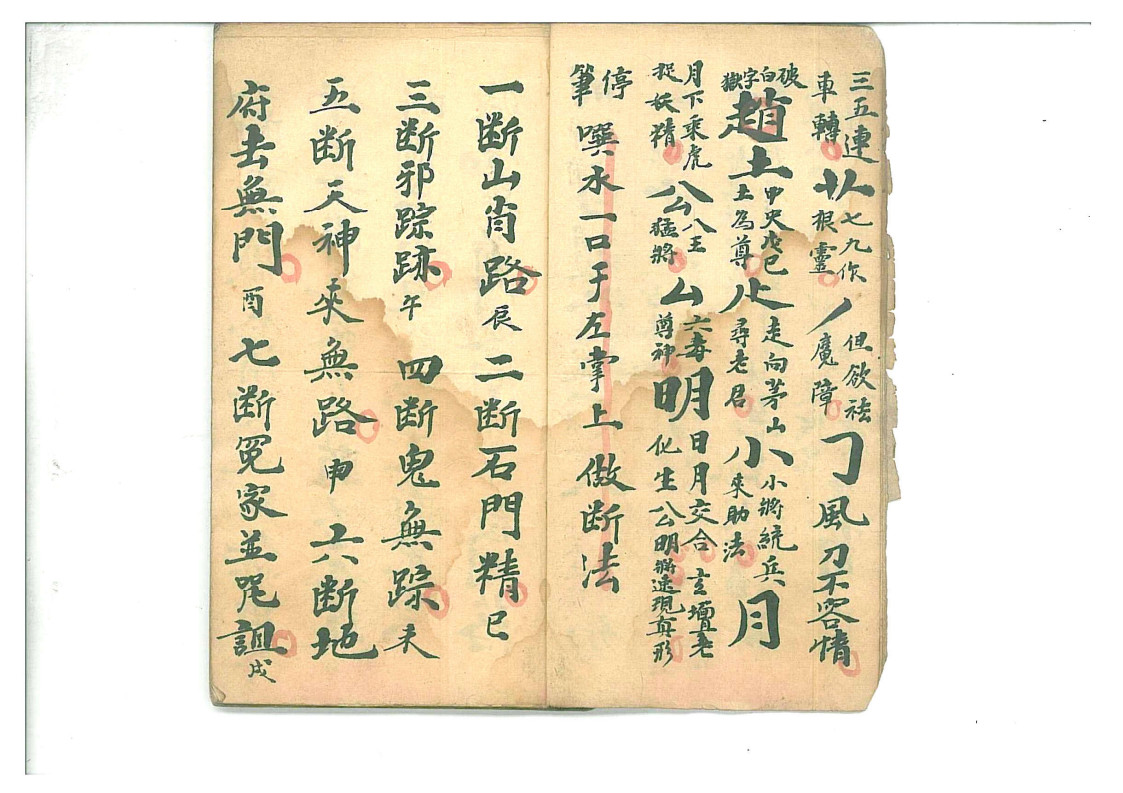 三五連車轉 廿 七九你根靈 丿 但欲祛魔障 ㇆ 風刀不容情
破白字獄 趙 土 中央戊己土為尊 走向茅山尋老君 小 小將統兵來助法 月
月下乘虎捉妖精 公 八王猛將 厶 六毒尊神 明 日月交合化生公明 玄壇老將速現真形
停筆 噀水一口于左掌上做断法
一断山肖路 辰 二断石門精 巳
三断邪踪跡 午 四断鬼無踪 未
五断天神來無路 申 六断地
府去無門 酉 七断冤家並咒詛 戌